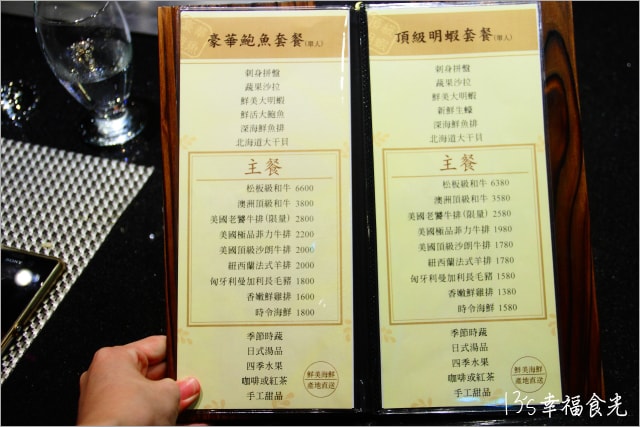 豪華鮑魚套餐(單人)
刺身拼盤
蔬果沙拉
鮮美大明蝦
鮮活大鮑魚
深海鮮魚排
北海道大干貝
主餐
松板級和牛 6600
澳洲頂級和牛 3800
美國老饕牛排(限量) 2800
美國極品菲力牛排 2200
美國頂級沙朗牛排 2000
紐西蘭法式羊排 2000
匈牙利曼加利長毛豬 1800
香嫩鮮雞排 1600
時令海鮮 1800
季節時蔬
日式湯品
四季水果
咖啡或紅茶
手工甜品
鮮美海鮮
產地直送
頂級明蝦套餐(單人)
刺身拼盤
蔬果沙拉
鮮美大明蝦
新鮮生蠔
深海鮮魚排
北海道大干貝
主餐
松板級和牛 6380
澳洲頂級和牛 3580
美國老饕牛排(限量) 2580
美國極品菲力牛排 1980
美國頂級沙朗牛排 1780
紐西蘭法式羊排 1780
匈牙利曼加利長毛豬 1580
香嫩鮮雞排 1380
時令海鮮 1580
季節時蔬
日式湯品
四季水果
咖啡或紅茶
手工甜品
鮮美海鮮
產地直送
SONY
13's幸福食光